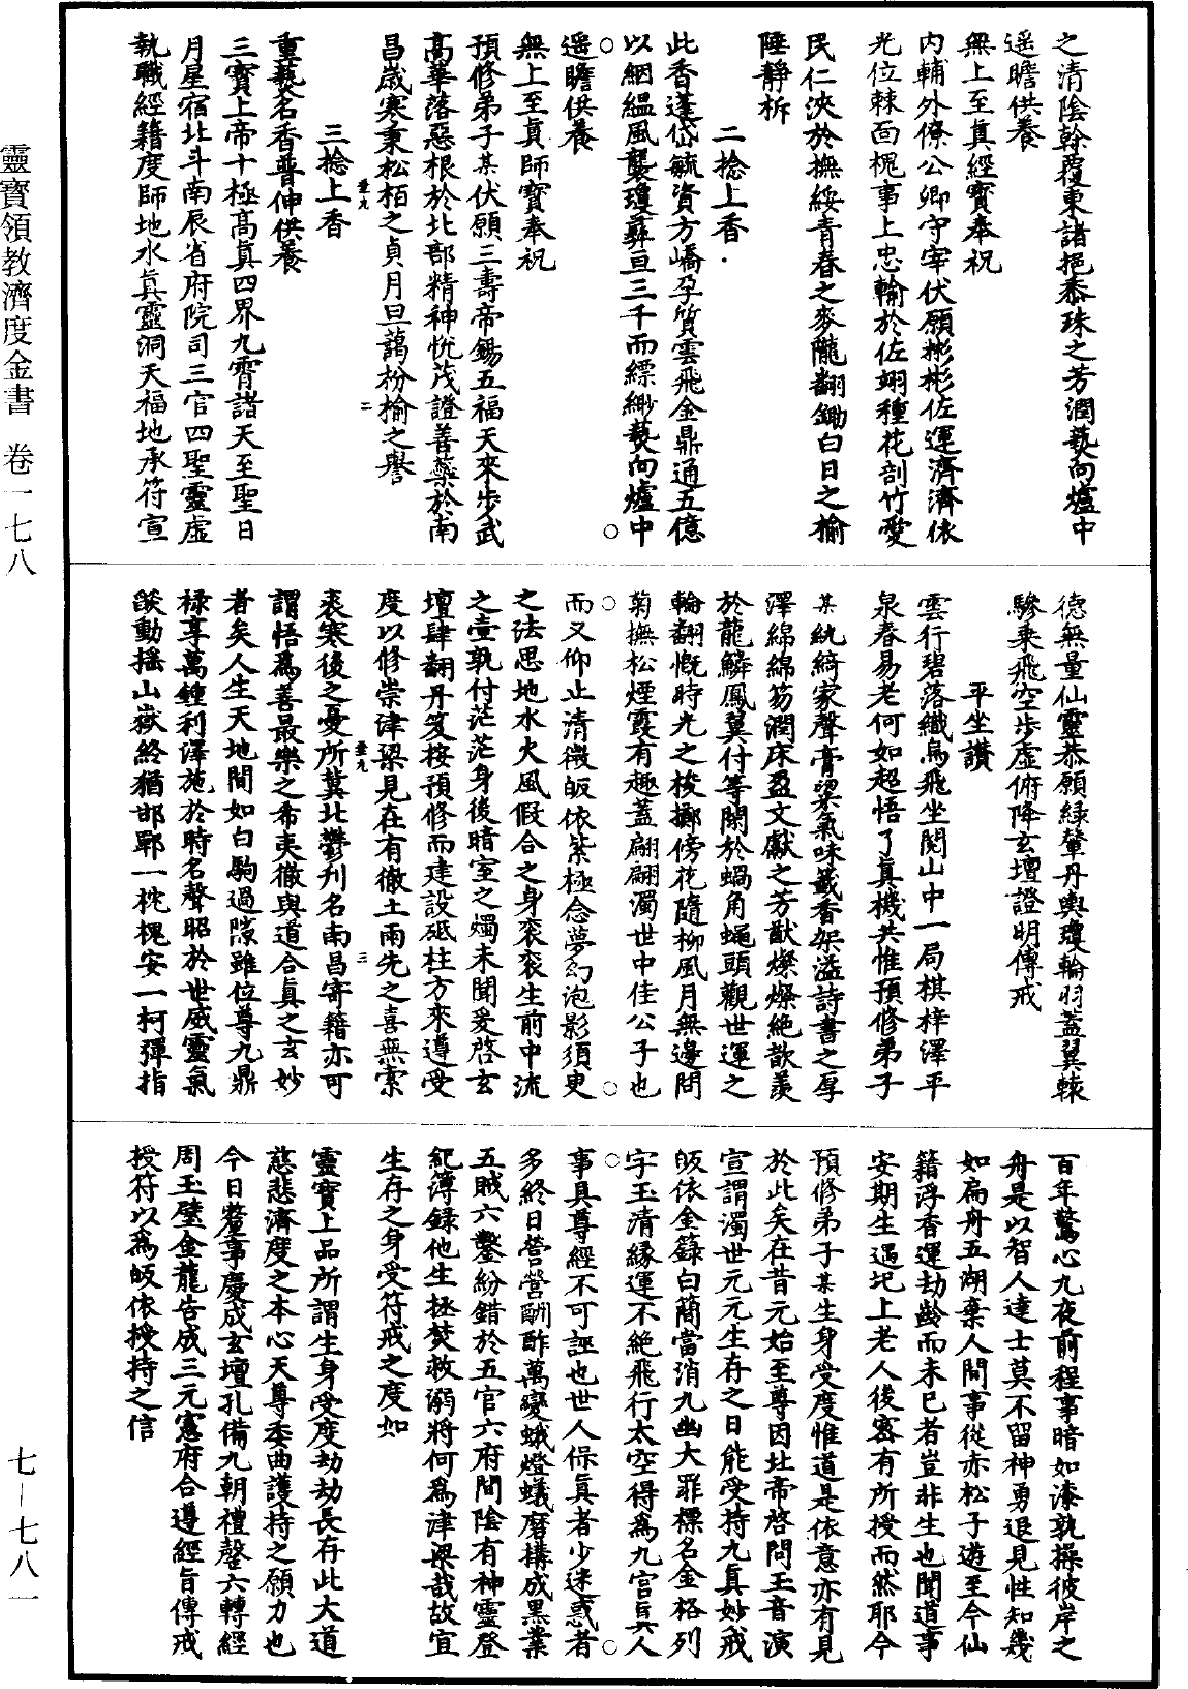 之清陰榦覆東諸挹黍珠之芳潤爇向爐中
遥瞻供養
無上至真經寶奉祝
内輔外僚公卿守宰伏願彬彬佐運濟濟依
光位棘面槐事上忠輸於佐翊種花剖竹愛
民仁浹於撫綏青春之麥隴翻鋤白日之榆
陲靜柝
二捻上香
此香蓬岱毓資方嶠孕質雲飛金鼎通五億
以絪縕風襲瓊彝亘三千而縹緲爇向爐中
遥瞻供養
無上至真師寶奉祝
預修弟子某伏願三壽帝錫五福天來步武
高華落惡根於北部精神悅茂證善藥於南
昌歲寒秉松栢之貞月旦藹枌榆之譽
三捻上香
重爇名香普伸供養
三寶上帝十極高真四界九霄諸天至聖日
月星宿北斗南辰省府院司三官四聖靈虛
執職經籍度師地水真靈洞天福地承符宣
德無量仙靈恭願綠輦丹輿瓊輪羽蓋翼轅
驂乘飛空步虛俯降玄壇證明傳戒
平坐讚
雲行碧落纖烏飛坐閱山中一局棋梓澤平
泉春易老何如超悟了真機共惟預修弟子
某紈綺家聲膏粱氣味籤香架溢詩書之厚
澤綿綿笏潤床盈文獻之芳猷燦燦絶歆羡
於龍鱗鳳翼付等閑於蝸角蠅頭觀世運之
輪翻慨時光之梭擲傍花隨柳風月無邊問
菊撫松煙霞有趣蓋翩翩濁世中佳公子也
而又仰止清微皈依紫極念夢幻泡影須臾
之法思地水火風假合之身衮衮生前中流
之壷孰付茫茫身後暗室之燭未聞爰啓玄
壇肆翻丹笈按預修而建設砥柱方來遵受
度以修崇津梁見在有徹土雨先之喜無索
裘寒後之憂所冀北鬱刋名南昌寄籍亦可
謂悟爲善最樂之希夷徹與道合真之玄妙
者矣人生天地間如白駒過隙雖位尊九鼎
祿享萬鍾利澤施於時名聲昭於世威靈氣
燄動摇山嶽終猶邯鄲一枕槐安一柯彈指
百年驚心九夜前程事暗如漆孰操彼岸之
舟是以智人達士莫不留神勇退見性知幾
如扁舟五湖棄人間事從赤松子遊至今仙
籍浮香運劫齡而未已者豈非生也聞道事
安期生遇圯上老人後密有所授而然耶今
預修弟子某生身受度惟道是依意亦有見
於此矣在昔元始至尊因北帝啓問玉音演
宣謂濁世元元生存之日能受持九真妙戒
皈依金籙白簡當消九幽大罪標名金格列
字玉清緣運不絶飛行太空得爲九宫真人
事具尊經不可誣也世人保真者少迷惑者
多終日營營酬酢萬變蛾燈蟻磨構成黑業
五賊六鑿紛錯於五官六府間陰有神靈登
紀簿録他生拯焚救溺將何爲津梁哉故宜
生存之身受符戒之度如
靈寶上品所謂生身受度劫劫長存此大道
慈悲濟度之本心天尊委曲護持之願力也
今日釐事慶成玄壇孔備九朝禮罄六轉經
周玉璧金龍告成三元憲府合遵經旨傳戒
授符以爲皈依授持之信
靈寶領教濟度金書 卷一七八
七—七八一